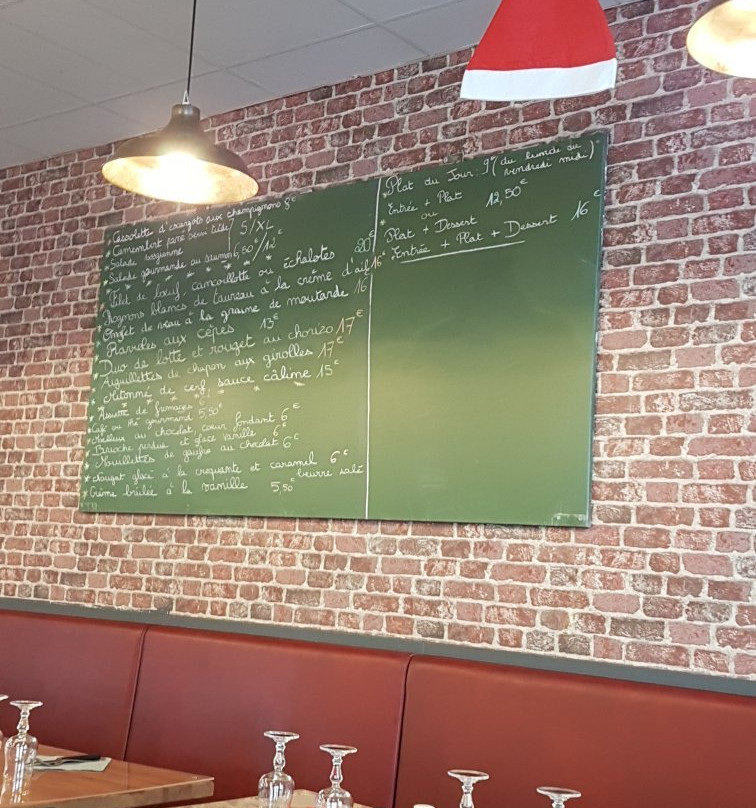 * Cassolette d'escargots aux champignons 8€
* Camembert pané
* Salade paysanne S/XL
* Salade gourmande au saumon 6,50€/12€
* Filet de boeuf, cancoillotte ou échalotes 20€
* Rognons blancs de taureau à la crème d'ail 16€
* Onglet de veau à la graine de moutarde 16€
* Ravioles aux cèpes 13€
* Duo de lotte et rouget au chorizo 17€
* Aiguillettes de chapon aux girolles 17€
* Mitonné de cerf, sauce câline 15€
* Assiette de fromages
* Café ou thé gourmand 5,50€
* Moelleux au chocolat, coeur fondant 6€
* Brioche perdue et glace vanille 6€
* Mouillettes de gaufre au chocolat 6€
* Nougat glacé à la croquante et caramel beurre salé 6€
* Crème brûlée à la vanille 5,50€
* Plat du Jour: 9€ (du lundi au
vendredi midi)
* Entrée + Plat
ou 12,50€
Plat + Dessert
* Entrée + Plat + Dessert 16€